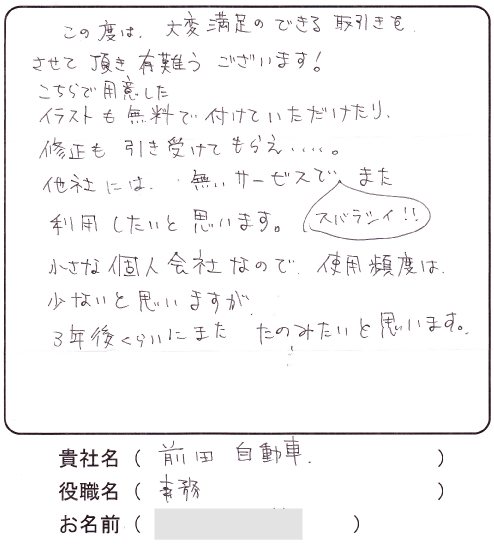 この度は、大変満足のできる取引きを
させて頂き有難うございます!
こちらで用意した
イラストも無料で付けていただけたり、
修正も引き受けてもらえ・・・・。
他社には、無いサービスで、また
利用したいと思います。 スバラシイ!!
小さな個人会社なので、使用頻度は、
少ないと思いますが
3年後くらいにまた たのみたいと思います。
貴社名( 前田 自動車. )
役職名( 事務 )
お名前( )